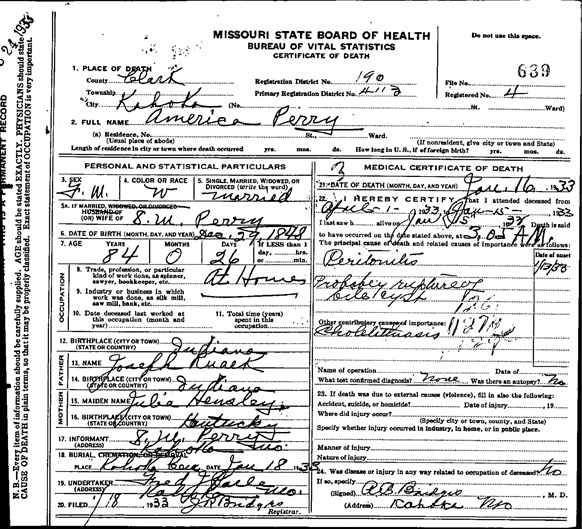 MISSOURI STATE BOARD OF HEALTH
BUREAU OF VITAL STATISTICS
CERTIFICATE OF DEATH
Do not use this space.
1. PLACE OF DEATH
County Clark Registration District No. 190 File No. 639
Township Primary Registration District No. 4113 Registered No. 4
City Kahoka (No. St. Ward)
2. FULL NAME America Perry
(a) Residence, No. St., Ward.
(Usual place of abode) (If nonresident, give city or town and State)
Length of residence in city or town where death occurred yrs. mos. ds. How long in U. S., if of foreign birth? yrs. mos. ds.
PERSONAL AND STATISTICAL PARTICULARS
3. SEX 4. COLOR OR RACE 5. SINGLE, MARRIED, WIDOWED, OR DIVORCED (write the word)
F.M. W married
5A. IF MARRIED, WIDOWED, OR DIVORCED
HUSBAND OF
(OR) WIFE OF S. M. Perry
6. DATE OF BIRTH (MONTH, DAY, AND YEAR) Dec. 29 1848
7. AGE YEARS MONTHS DAYS If LESS than 1 day, hrs. or min.
84 0 26
OCCUPATION
8. Trade, profession, or particular kind of work done, as spinner, sawyer, bookkeeper, etc. At Home
9. Industry or business in which work was done, as silk mill, saw mill, bank, etc.
10. Date deceased last worked at this occupation (month and year)
11. Total time (years) spent in this occupation
12. BIRTHPLACE (CITY OR TOWN) (STATE OR COUNTRY) Indiana
FATHER
13. NAME Joseph
14. BIRTHPLACE (CITY OR TOWN) (STATE OR COUNTRY) Indiana
MOTHER
15. MAIDEN NAME Julia Hensley
16. BIRTHPLACE (CITY OR TOWN) (STATE OR COUNTRY) Kentucky
17. INFORMANT S. M. Perry
(ADDRESS) Kahoka Mo.
18. BURIAL, CREMATION, OR REMOVAL
PLACE Kahoka Cem. DATE Jan 18 1933
19. UNDERTAKER Fred
(ADDRESS) Kahoka Mo.
20. FILED 1/18 1933 J R Bridges
Registrar.
MEDICAL CERTIFICATE OF DEATH
21. DATE OF DEATH (MONTH, DAY, AND YEAR) Jan. 16 1933
22. I HEREBY CERTIFY, That I attended deceased from
I last saw h alive on 1933 Death is said
to have occurred on the date stated above, at 3.05 A.M.
The principal cause of death and related causes of importance were as follows:
Date of onset
Peritonitis
Probably rupture of
Other contributory causes of importance: 127A
Cholelithiasis
Name of operation Date of
What test confirmed diagnosis? None Was there an autopsy? No
23. If death was due to external causes (violence), fill in also the following:
Accident, suicide, or homicide? Date of injury , 19
Where did injury occur?
(Specify city or town, county, and State)
Specify whether injury occurred in industry, in home, or in public place.
Manner of injury
Nature of injury
24. Was disease or injury in any way related to occupation of deceased? No
If so, specify
(Signed) A.B. Bridges, M. D.
(Address) Kahoka Mo
N. B.—Every item of information should be carefully supplied. AGE should be stated EXACTLY. PHYSICIANS should state
CAUSE OF DEATH in plain terms, so that it may be properly classified. Exact statement of OCCUPATION is very important.